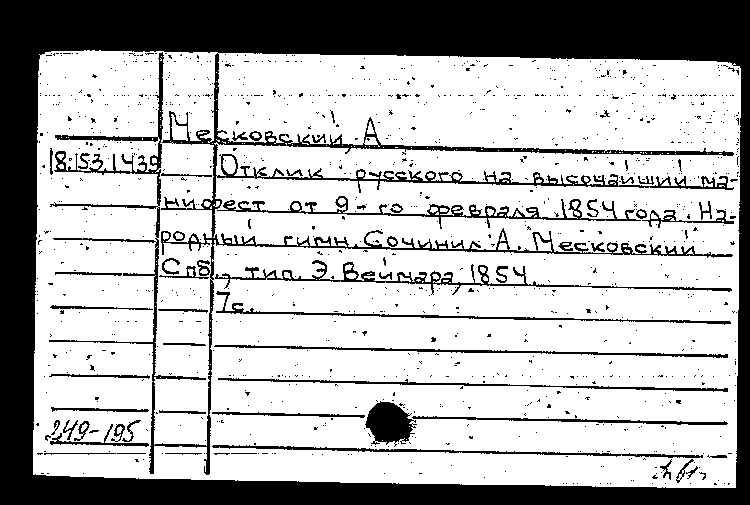 Месковский, А
18.153.1439 Отклик русского на высочайший ма-
нифест от 9-го февраля 1854 года. На-
родный гимн. Сочинил А. Месковский
Спб., тип. Э. Веймара, 1854.
7с.
249-195